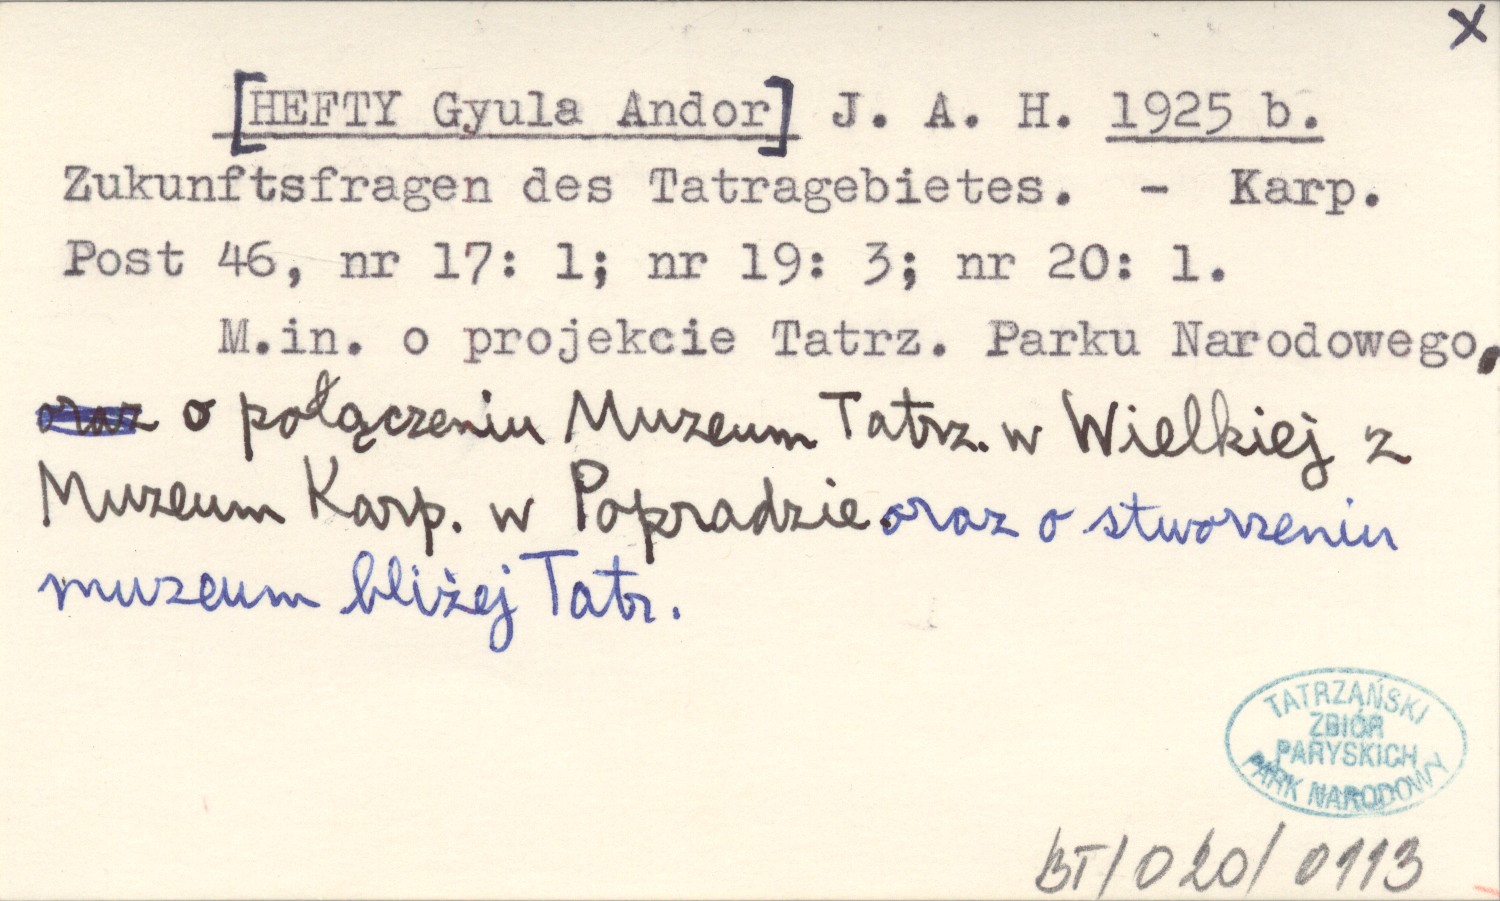 X
[HEFTY Gyula Andor] J. A. H. 1925 b.
Zukunftsfragen des Tatragebietes. - Karp.
Post 46, nr 17: 1; nr 19: 3; nr 20: 1.
M.in. o projekcie Tatrz. Parku Narodowego,
oraz o połączeniu Muzeum Tatrz. w Wielkiej z
Muzeum Karp. w Popradzie. oraz o stworzeniu
muzeum bliżej Tatr.
TATRZAŃSKI
ZBIÓR
PARYSKICH
PARK NARODOWY
BT/020/0113